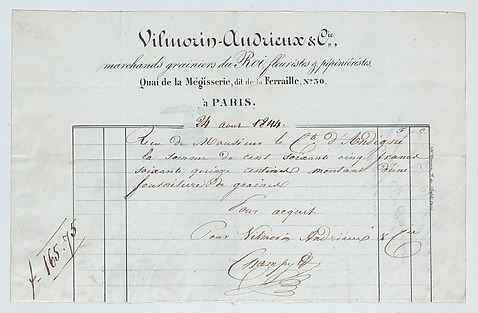 Vilmorin-Andrieux & Cie,
marchands grainiers du Roi, fleuristes & pépiniéristes,
Quai de la Mégisserie, dit de la Ferraille, No. 30,
à PARIS.
24 août 1844.
F. C.
Reçu de Monsieur le Cte d'Andigné
la somme de cent soixante cinq francs
soixante quinze centimes montant d'une
fourniture de graines
Pour acquit
Pour Vilmorin Andrieux & Cie
f. 165-75